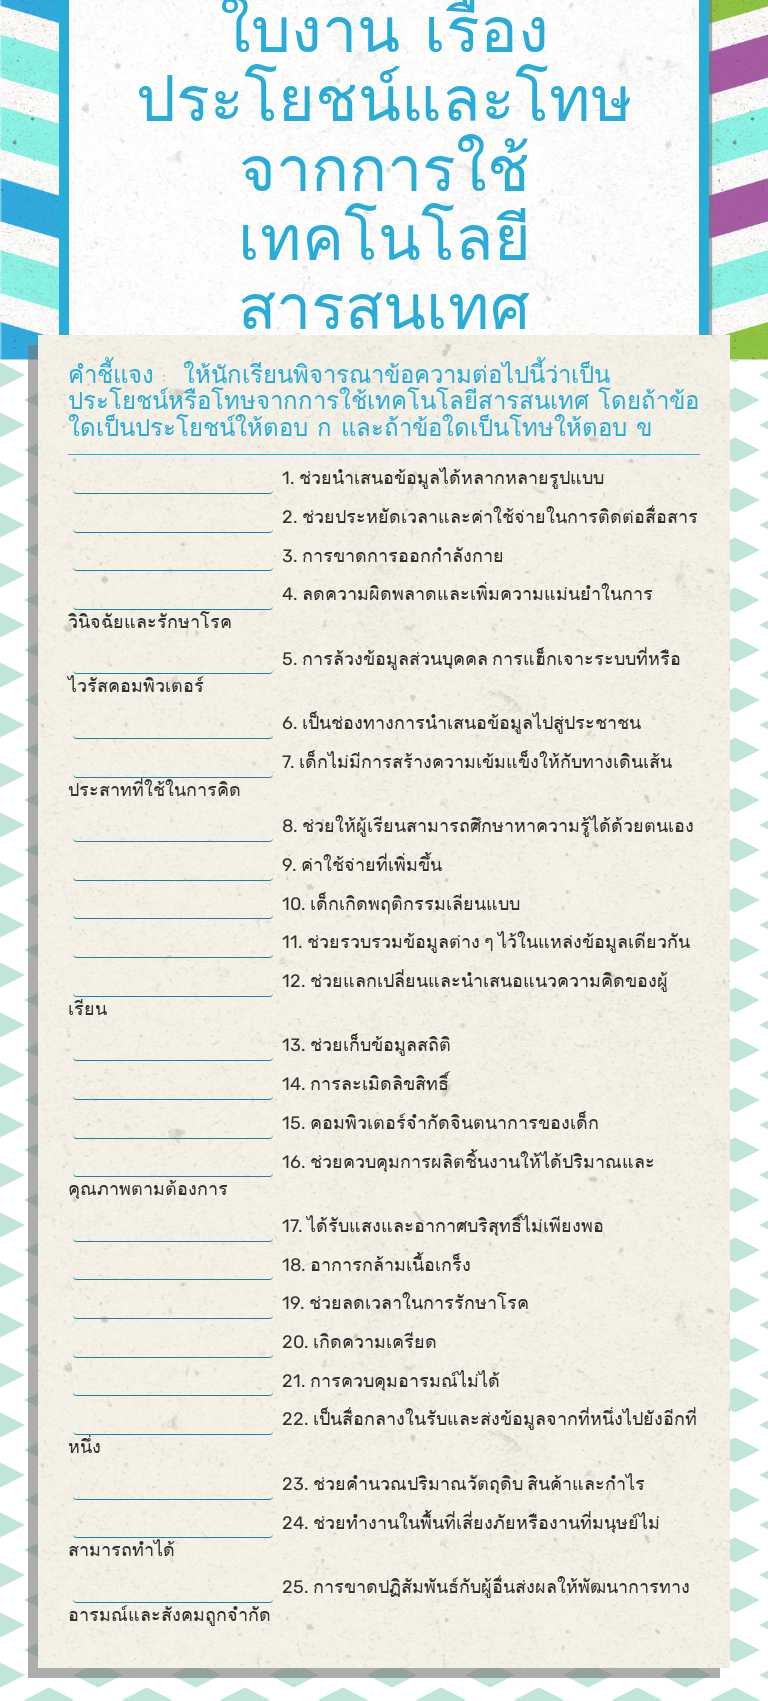 ใบงาน เรื่อง
ประโยชน์และโทษ
จากการใช้
เทคโนโลยี
สารสนเทศ
คำชี้แจง : ให้นักเรียนพิจารณาข้อความต่อไปนี้ว่าเป็น
ประโยชน์หรือโทษจากการใช้เทคโนโลยีสารสนเทศ โดยถ้าข้อ
ใดเป็นประโยชน์ให้ตอบ ก และถ้าข้อใดเป็นโทษให้ตอบ ข
1. ช่วยนำเสนอข้อมูลได้หลากหลายรูปแบบ
2. ช่วยประหยัดเวลาและค่าใช้จ่ายในการติดต่อสื่อสาร
3. การขาดการออกกำลังกาย
4. ลดความผิดพลาดและเพิ่มความแม่นยำในการ
วินิจฉัยและรักษาโรค
5. การล้วงข้อมูลส่วนบุคคล การแฮ็กเจาะระบบที่หรือ
ไวรัสคอมพิวเตอร์
6. เป็นช่องทางการนำเสนอข้อมูลไปสู่ประชาชน
7. เด็กไม่มีการสร้างความเข้มแข็งให้กับทางเดินเส้น
ประสาทที่ใช้ในการคิด
8. ช่วยให้ผู้เรียนสามารถศึกษาหาความรู้ได้ด้วยตนเอง
9. ค่าใช้จ่ายที่เพิ่มขึ้น
10. เด็กเกิดพฤติกรรมเลียนแบบ
11. ช่วยรวบรวมข้อมูลต่าง ๆ ไว้ในแหล่งข้อมูลเดียวกัน
12. ช่วยแลกเปลี่ยนและนำเสนอแนวความคิดของผู้
เรียน
13. ช่วยเก็บข้อมูลสถิติ
14. การละเมิดลิขสิทธิ์
15. คอมพิวเตอร์จำกัดจินตนาการของเด็ก
16. ช่วยควบคุมการผลิตชิ้นงานให้ได้ปริมาณและ
คุณภาพตามต้องการ
17. ได้รับแสงและอากาศบริสุทธิ์ไม่เพียงพอ
18. อาการกล้ามเนื้อเกร็ง
19. ช่วยลดเวลาในการรักษาโรค
20. เกิดความเครียด
21. การควบคุมอารมณ์ไม่ได้
22. เป็นสื่อกลางในรับและส่งข้อมูลจากที่หนึ่งไปยังอีกที่
หนึ่ง
23. ช่วยคำนวณปริมาณวัตถุดิบ สินค้าและกำไร
24. ช่วยทำงานในพื้นที่เสี่ยงภัยหรืองานที่มนุษย์ไม่
สามารถทำได้
25. การขาดปฏิสัมพันธ์กับผู้อื่นส่งผลให้พัฒนาการทาง
อารมณ์และสังคมถูกจำกัด